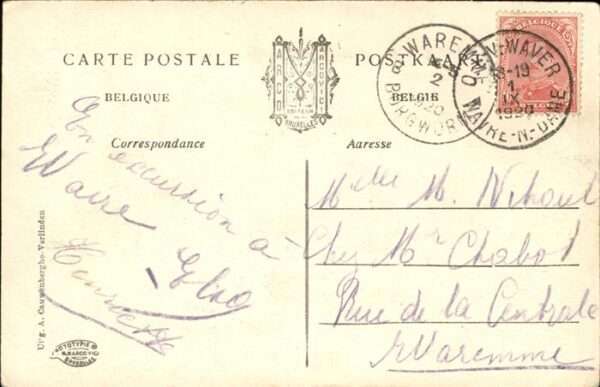 CARTE POSTALE
POSTKAART
BELGIQUE
BELGIE
Correspondance
Adresse
MARCO
MARCOVICI
BRUXELLES
WAREMME
2
BORGWORM
N-WAVER
18-19
1
IX
1920
WAVRE-N-DAME
BELGIQUE
En excursion à
Wavre
Mlle M. Nihoul
Chez Mr Chabot
Rue de la Centrale
Waremme
Uitg. A. Cauwenberghs-Verlinden
PHOTOTYPIE
MARCOVICI
BRUXELLES